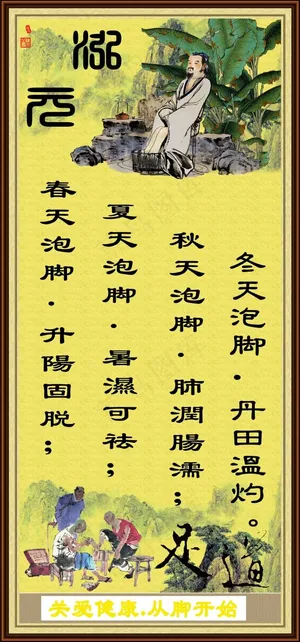 泓
元
春天泡脚.升陽固脱;
夏天泡脚.暑濕可祛;
秋天泡脚.肺潤腸濡;
冬天泡脚.丹田溫灼。
足道
关爱健康.从脚开始